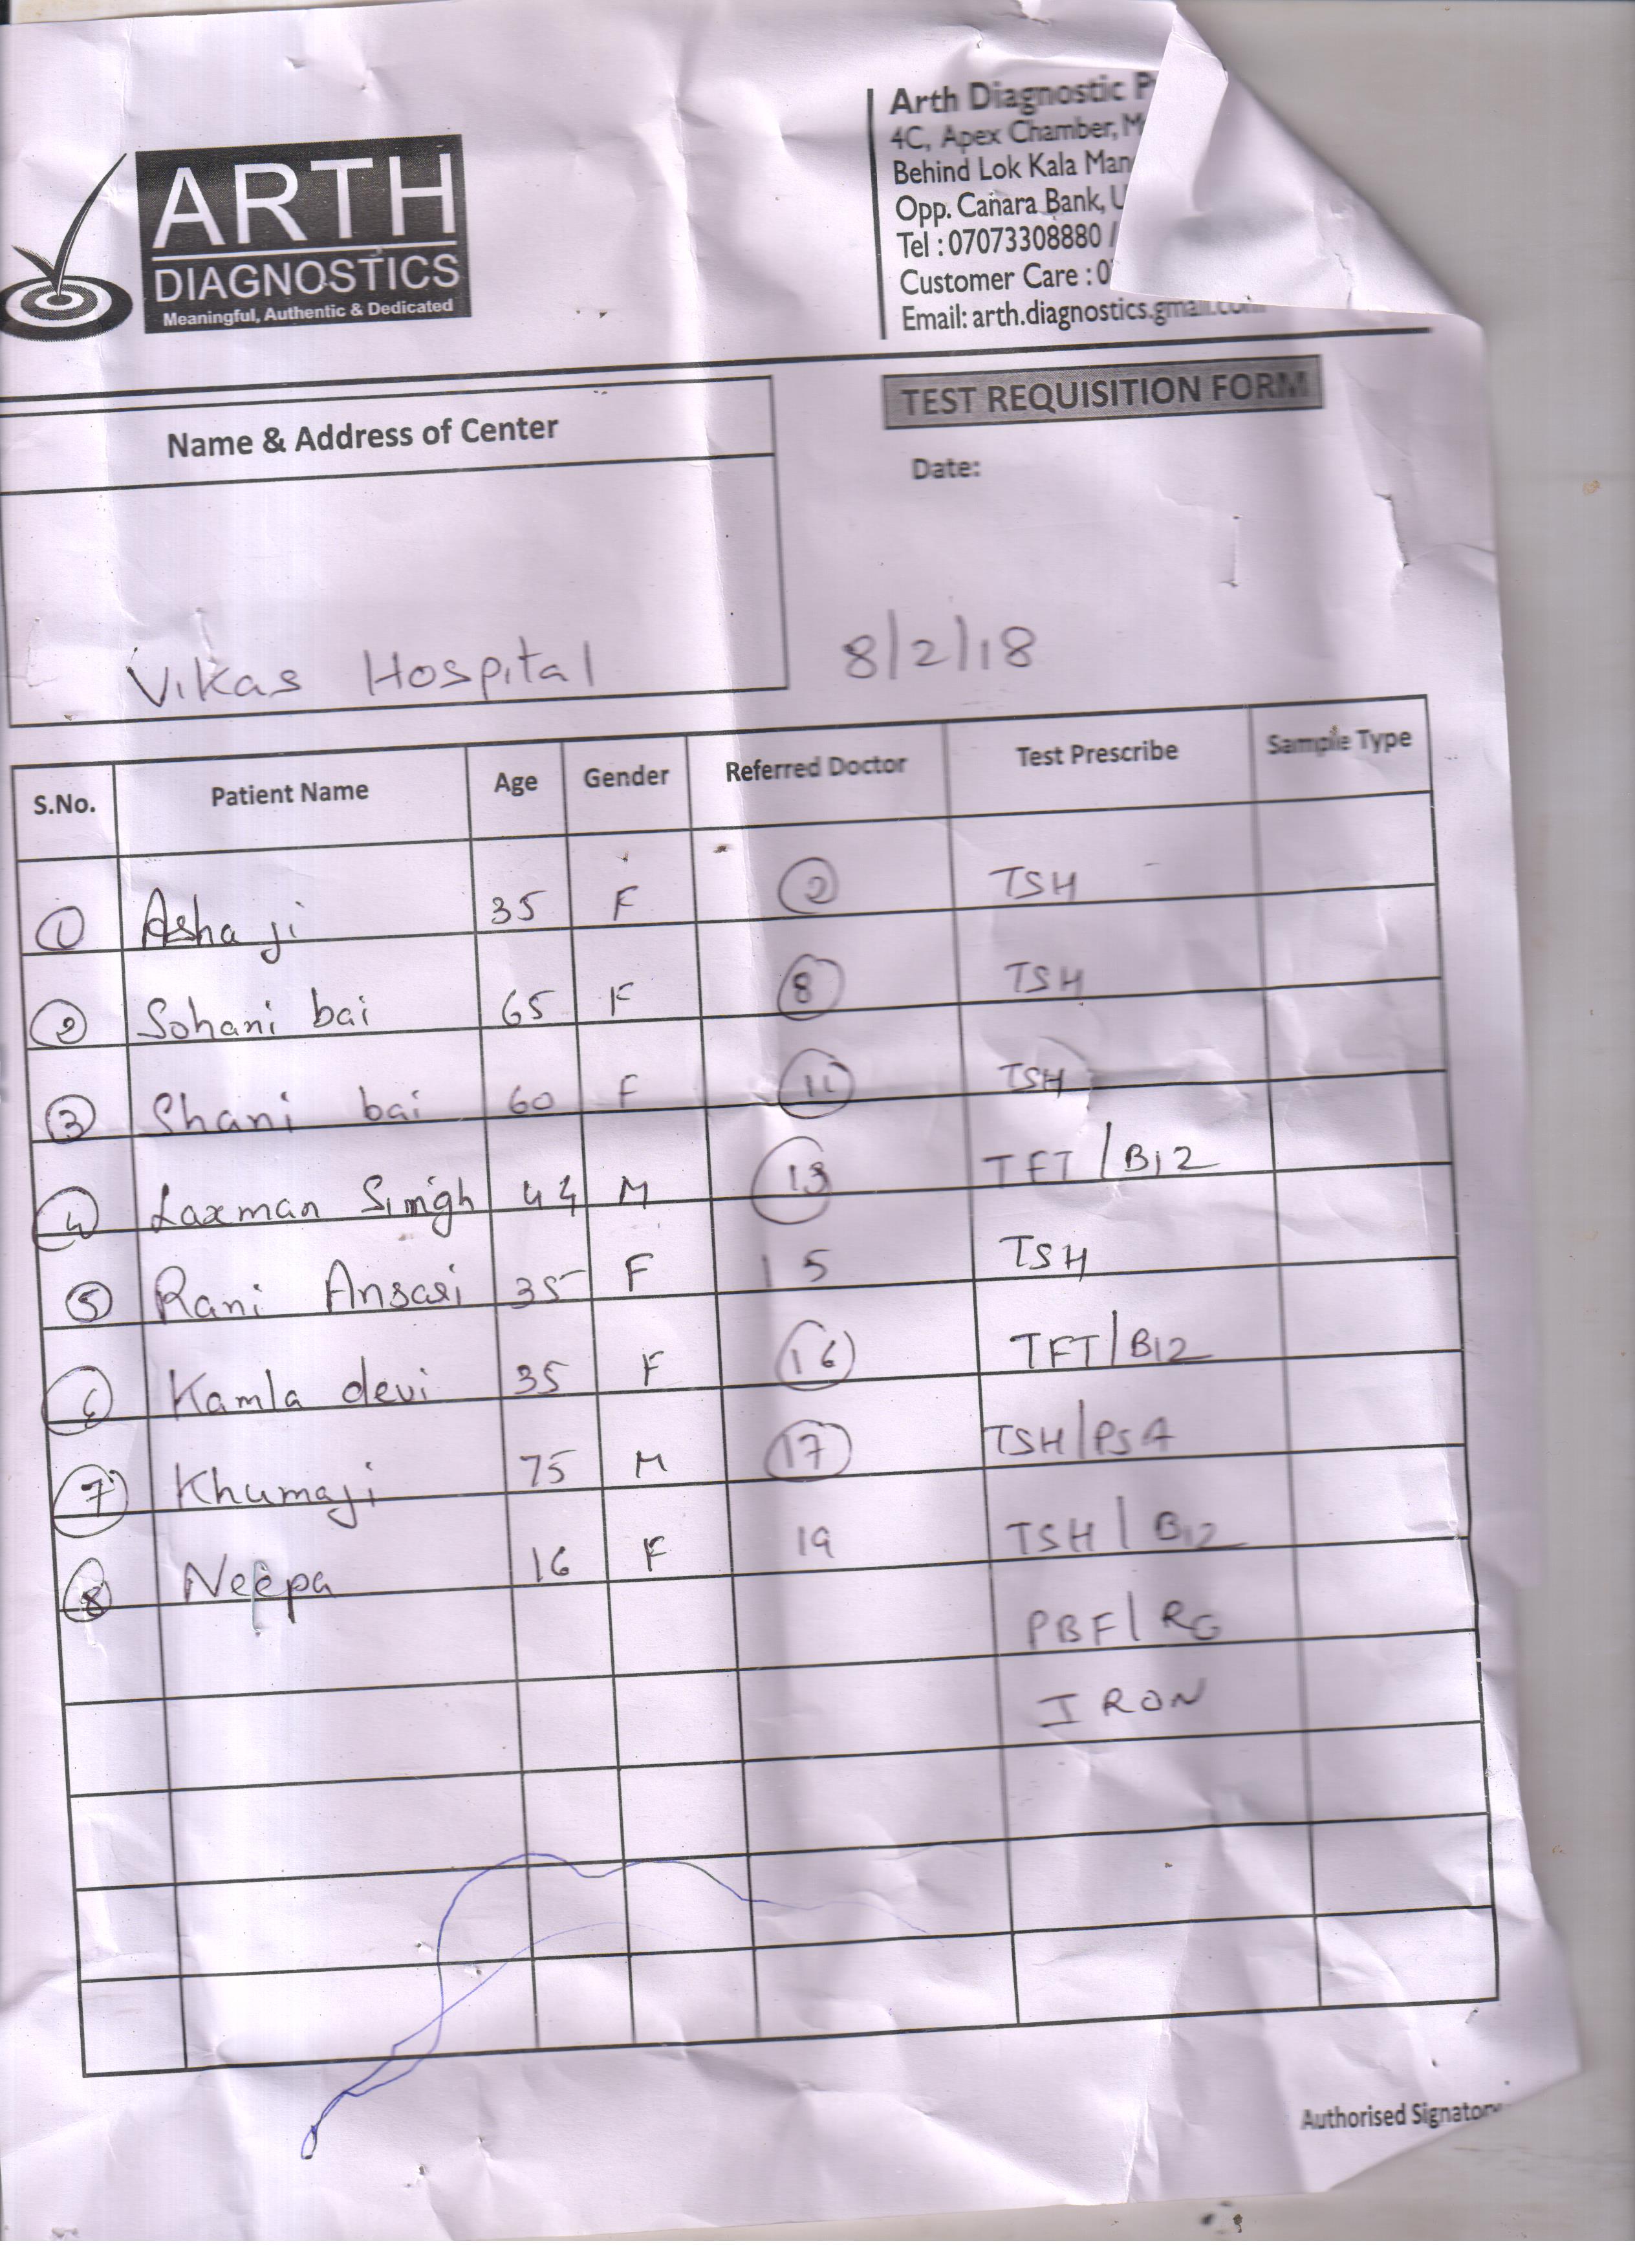 ARTH
DIAGNOSTICS
Meaningful, Authentic & Dedicated
Arth Diagnostic
4C, Apex Chamber,
Behind Lok Kala
Opp. Canara Bank,
Tel : 07073308880 /
Customer Care :
Email: arth.diagnostics.gmail.com
TEST REQUISITION FORM
Name & Address of Center
Date:
Vikas Hospital
8/2/18
S.No. Patient Name Age Gender Referred Doctor Test Prescribe Sample Type
1 Asha ji 35 F 2 TSH
2 Sohani bai 65 F 8 TSH
3 Shani bai 60 F 11 TSH
4 Laxman Singh 44 M 13 TFT / B12
5 Rani Ansari 35 F 15 TSH
6 Kamla devi 35 F 16 TFT / B12
7 Khumaji 75 M 17 TSH / PSA
8 Neepa 16 F 19 TSH / B12
PBF / RG
IRON
Authorised Signatory